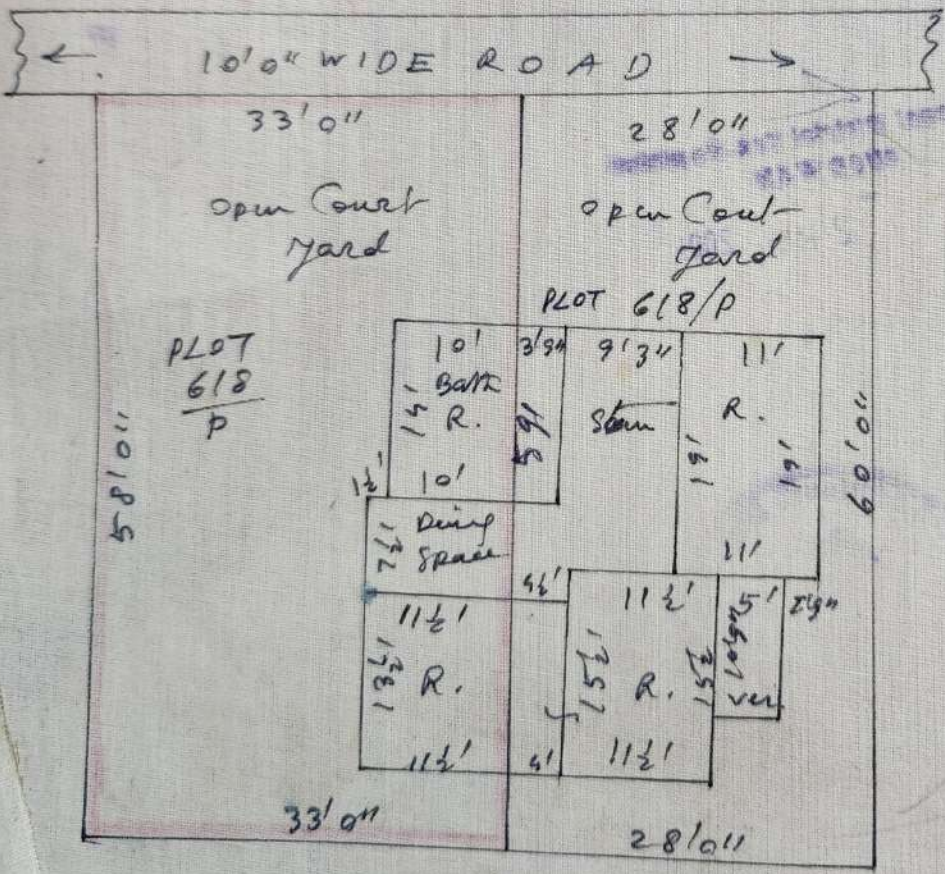 10'0" WIDE ROAD
33'0"
28'0"
open Court
yard
open Cout-
yard
PLOT 618/P
PLOT
618
P
58'0"
60'0"
10'
Bath
R.
14'
10'
3'9"
9'3"
11'
R.
16'
16'
11'
1½'
7½'
Dining
Space
4½'
11½'
13½'
R.
11½'
4'
11½'
15½'
R.
15½'
11½'
5'
ver
33'0"
28'0"